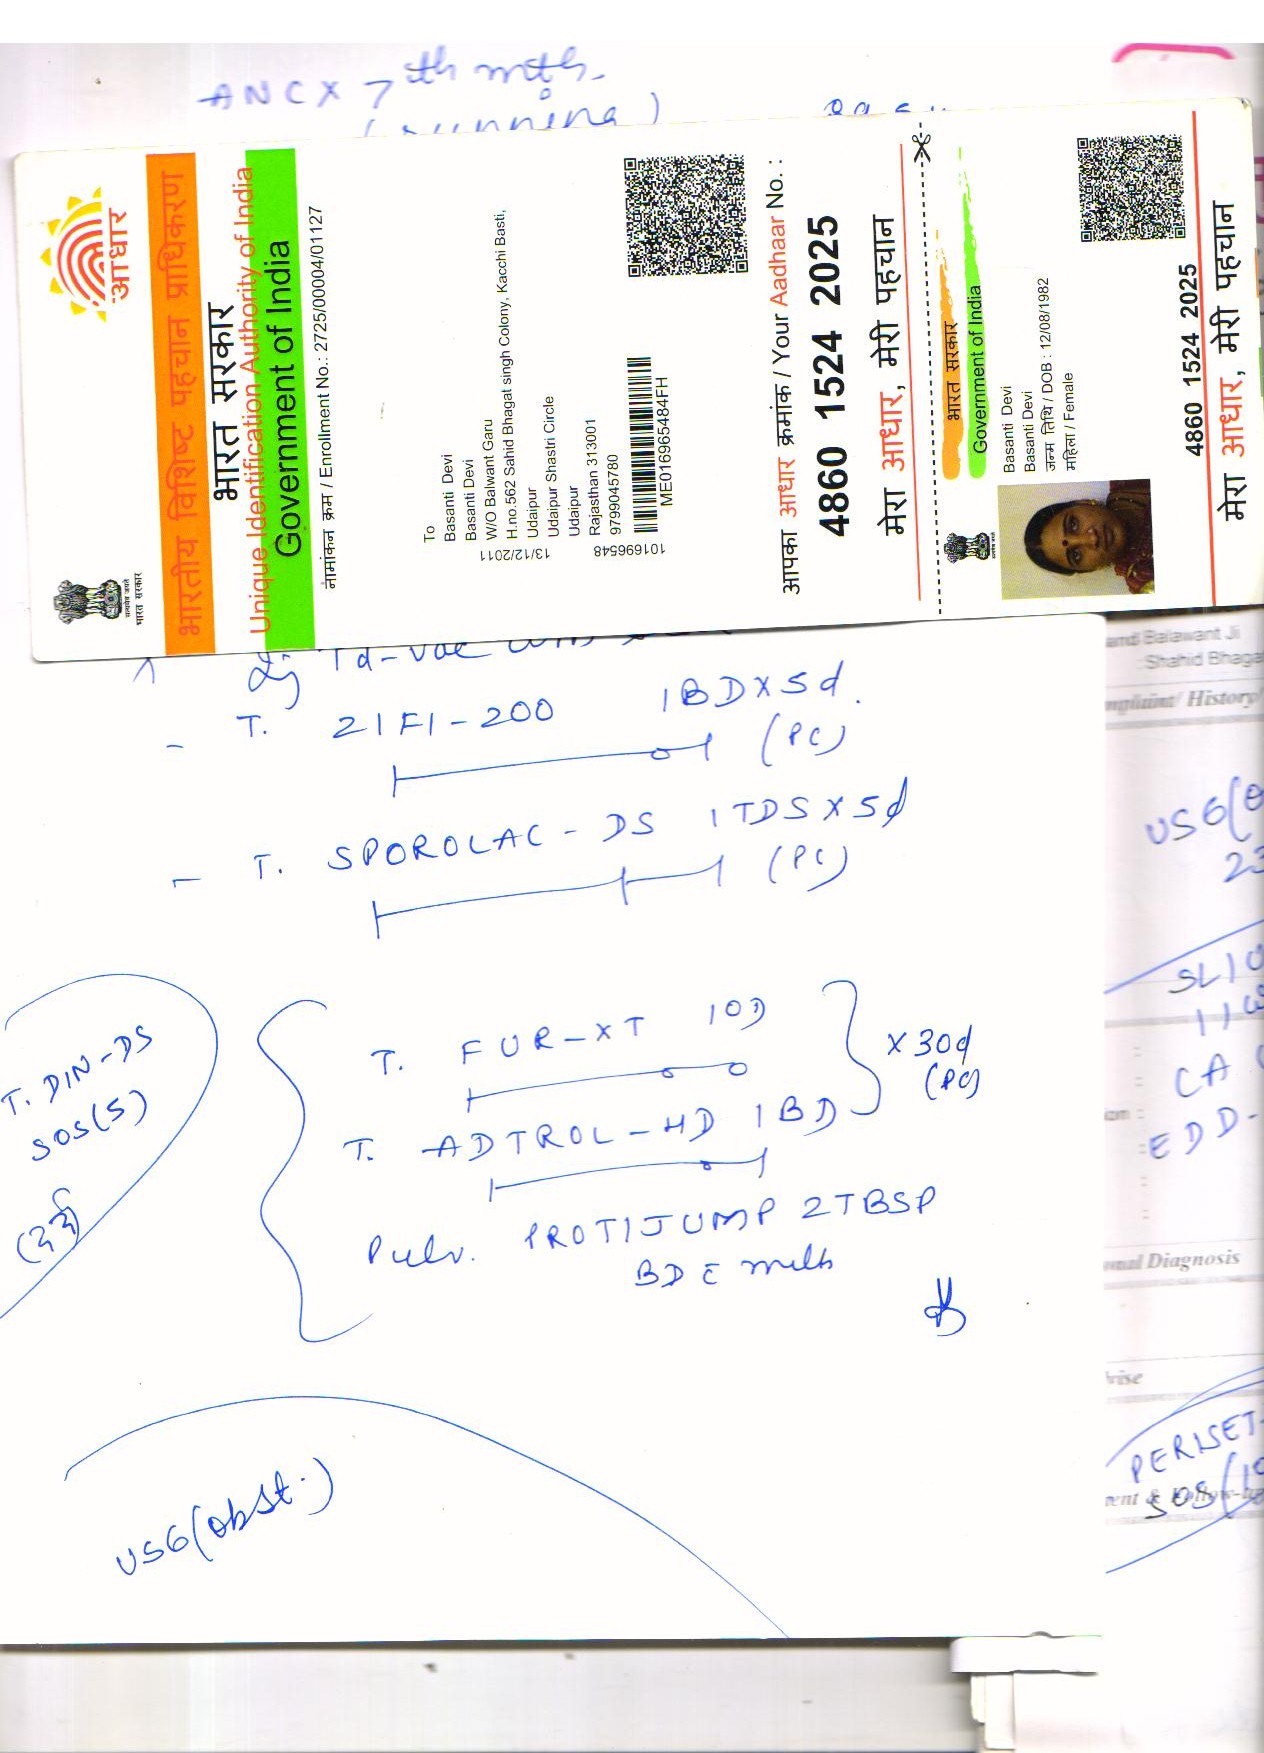 ANC X 7th mth.
(running)
आधार
भारत सरकार
भारतीय विशिष्ट पहचान प्राधिकरण
भारत सरकार
Unique Identification Authority of India
Government of India
नामांकन क्रम / Enrollment No.: 2725/00004/01127
To
Basanti Devi
Basanti Devi
W/O Balwant Garu
H.no.562 Sahid Bhagat singh Colony, Kacchi Basti,
Udaipur
Udaipur Shastri Circle
Udaipur
Rajasthan 313001
9799045780
13/12/2011
101696548
ME016965484FH
आपका आधार क्रमांक / Your Aadhaar No. :
4860 1524 2025
मेरा आधार, मेरी पहचान
भारत सरकार
Government of India
Basanti Devi
Basanti Devi
जन्म तिथि / DOB : 12/08/1982
महिला / Female
4860 1524 2025
मेरा आधार, मेरी पहचान
Inj Td-vac
- T. ZIFI-200 1BD X 5d.
(PC)
- T. SPOROLAC-DS 1TDS X 5d
(PC)
T. FUR-XT 1OD
X 30d
(PC)
T. ADTROL-HD 1BD
Pulv. PROTIJUMP 2TBSP
BD c milk
T. DIN-DS
SOS(5)
(दर्द)
USG(obst.)
and Balawant Ji
Shahid Bhaga
mplaint/ History/
USG(
23
SLIU
CA
EDD-
onal Diagnosis
PERISET-
SOS(10
ment & Follow-up